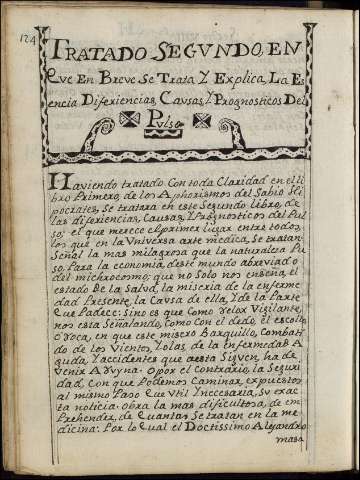 124
TRATADO SEGVNDO, EN
Qve En Breve Se Trata Y Explica, La Es
encia Diferiencias, Cavsas, Y Prognosticos Del
Pvlso
Haviendo tratado Con toda Claridad en el li
bro Primero, de los Aphorismos del Sabio
pocrates, Se tratara en este Segundo libro, de
las diferiencias, Causas, Y Prognosticos del Pul
so; el que merece el primer lugar entre todos,
los que en la Vniversa arte medica, Se tratan.
Señal la mas milagrosa que la naturaleza Pu
so, Para la economia deste mundo abreviado
del michrocosmo; que no Solo nos enseña, el
estado De la Salud, la miseria de la enferme
dad Presente, la Cavsa de ella, Y de la Parte
Que Padece: Sino es que Como relox Vigilante,
nos esta Señalando, Como Con el dedo, el escollo,
O roca, en que este misero barquillo, Combati
do de los Vientos, Y olas, de la enfermedad A
guda, Y accidentes que aesta Sigven, ha de
Venir A rvyna. O por el Contrario, la Seguri
dad, Con que Podemos Caminar, expuestos
al mismo Paso Que Vtil Y necesaria, Su exac
ta noticia: obra la mas dificultosa, de em
Prehender, de Cuantas Se tratan en la me
dicina: Por lo Cual el Doctissimo Alejandro